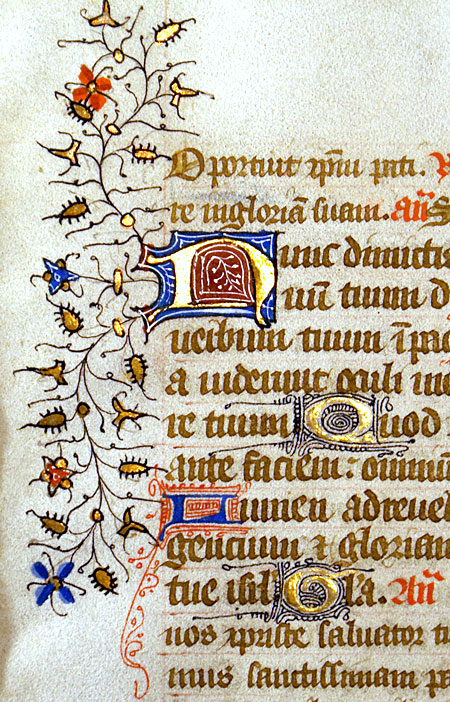 Oportuit xp̄m pati.
te in gloriā suam. an̄ S
Nunc dimictis
uū tuum d
uerbum tuum ī pac
a uiderunt oculi me
re tuum Quod
ante faciem: omniū
Lumen ad reuel
gencium & gloriam
tue isrl Gl̄a. An̄
nos xpriste saluator
mus sanctissimam pa